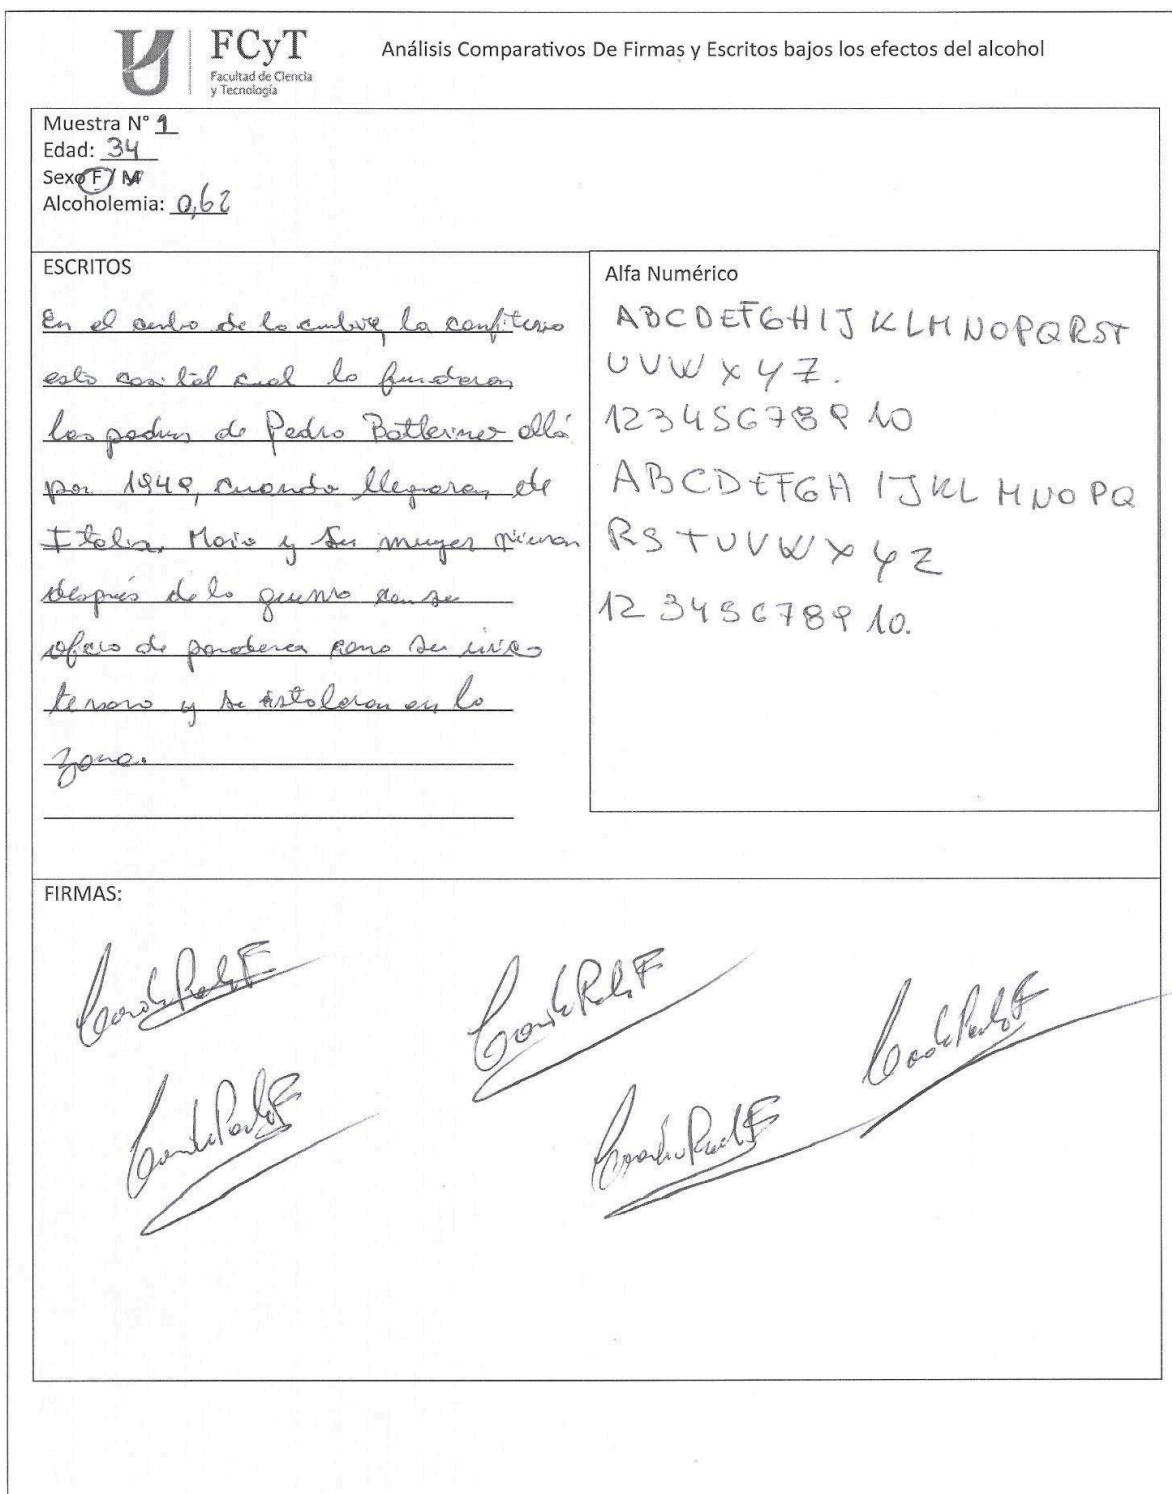 FCyT
Facultad de Ciencia
y Tecnología
Análisis Comparativos De Firmas y Escritos bajos los efectos del alcohol
Muestra N° 1
Edad: 34
Sexo F / M
Alcoholemia: 0,62
ESCRITOS
En el centro de la cumbre, la confiteria
esta casi tal cual la fundaron
los padres de Pedro allá
por 1949, cuando llegaron de
Italia. Mario y su mujer vinieron
después de la guerra con su
oficio de panaderos como su único
tesoro y se instalaron en la
zona.
Alfa Numérico
ABCDEFGHIJKLMNOPQRST
UVWXYZ.
12345678910
ABCDEFGHIJKLMNOPQ
RSTUVWXYZ
12345678910.
FIRMAS: